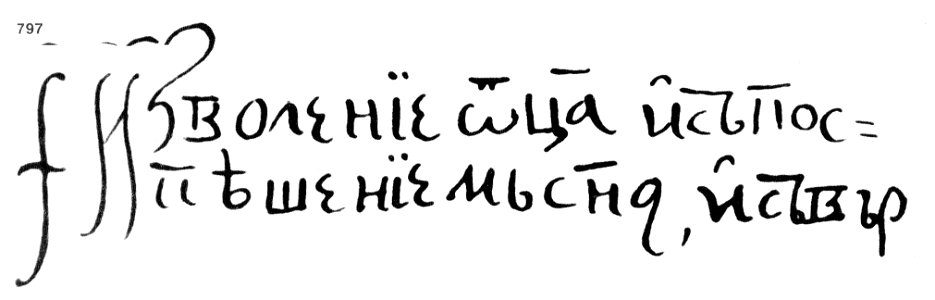 797
† Изволенїе ѿц҃а и҆ съпос=
пѣшенїемь сн҃а, и҆ съвър